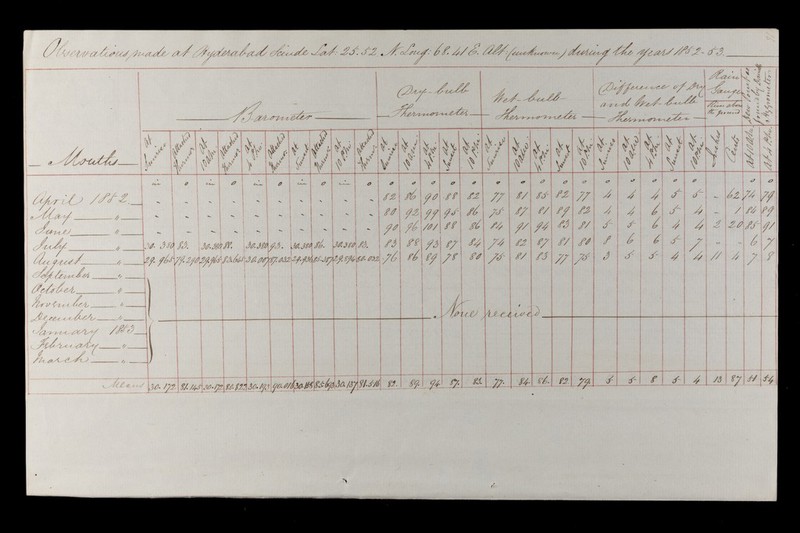 Observations, made at Hyderabad Scinde Lat: 25.52 N. Long: 68.41 E. Alt (unknown) during the years 1852-53.
Months Barometer Dry-bulb Thermometer Wet-bulb Thermometer Difference of Dry and Wet bulb Thermometer Rain Gauge
at Sunrise attached Thermr. at 10 A.M. attached Thermr. at 4 P.M. attached Thermr. at Sunset attached Thermr. at 10 P.M. attached Thermr. at Sunrise at 10 A.M. at 4 P.M. at Sunset at 10 P.M. at Sunrise at 10 A.M. at 4 P.M. at Sunset at 10 P.M. at Sunrise at 10 A.M. at 4 P.M. at Sunset at 10 P.M. Inches Cents
April 1852 82 86 90 88 82 77 81 85 82 77 4 4 4 5 5 - 62 74 79
May " 80 92 99 95 86 75 87 81 89 82 4 4 6 5 4 - 1 84 89
June " 90 96 101 88 86 84 91 94 83 81 5 5 6 4 4 2 20 85 91
July " 30.380 83. 30.380 88. 30.380 93. 30.380 86. 30.380 83. 83 88 93 87 84 74 82 87 81 80 8 6 6 5 7 - - 6 7
August " 76 86 89 78 80 75 81 83 77 75 3 5 5 4 4 11 4 7 8
September "
October "
November "
December " None received
January 1853
February "
March "
Means 30.172 82. 89. 94. 87. 83. 77. 84. 86. 82. 79. 5 5 8 5 4 13 87